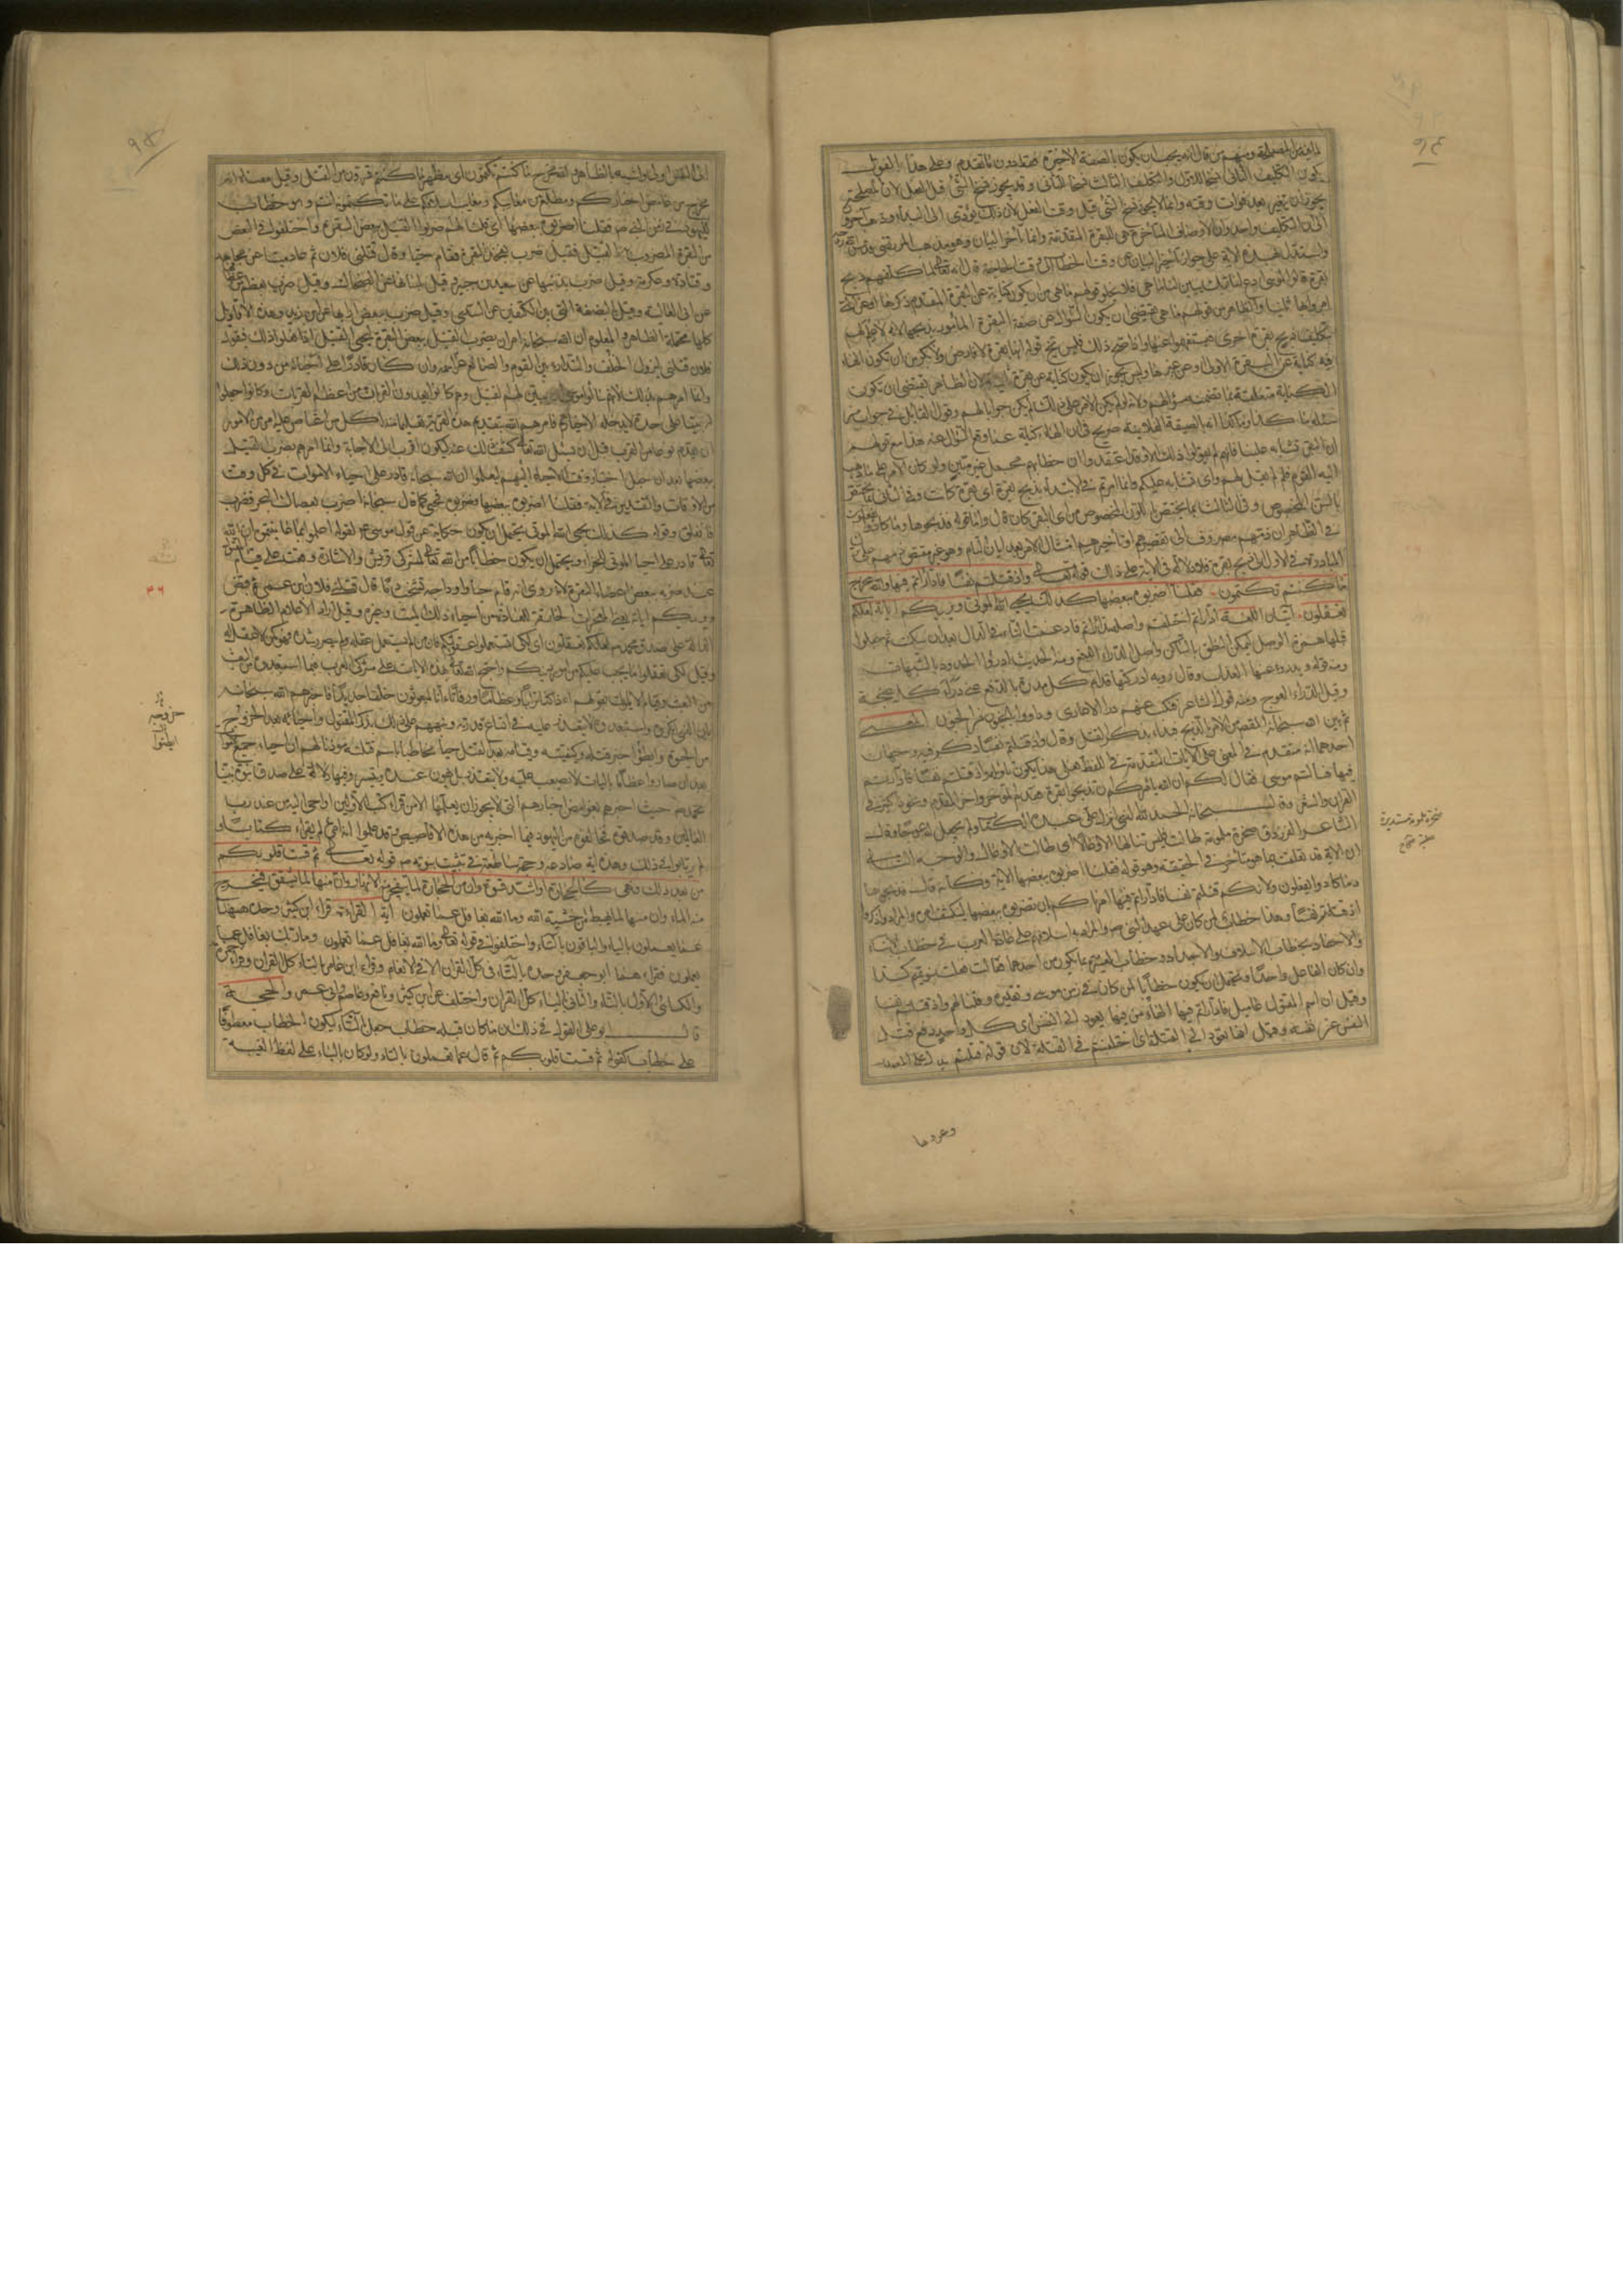 لما فيه من المصلحة ومنهم من قال انه يجب ان يكون بالصفة الاخيرة فقط دون ما تقدم وعلى هذا القول
يكون التكليف الثاني نسخا للاول والتكليف الثالث نسخا للثاني وقد يجوز نسخ الشئ قبل الفعل لان المصلحة
يجوز ان تتغير بعد فوات وقته وانما لا يجوز نسخ الشئ قبل وقت الفعل لان ذلك يؤدي الى البداء وذهب آخرون
الى ان التكليف واحد وان الاوصاف المتاخرة هي للبقرة المتقدمة وانما تأخر البيان وهو مذهب المرتضى قدس الله روحه
واستدل بهذه الاية على جواز تأخير البيان عن وقت الخطاب الى وقت الحاجة قال انه تعالى لما كلفهم ذبح
بقرة قالوا لموسى ادع لنا ربك يبين لنا ما هي فلا يخلو قولهم ما هي من ان يكون كناية عن البقرة المتقدم ذكرها او عن التي
امروا بها ثانيا والظاهر من قولهم ما هي يقتضي ان يكون السؤال عن صفة البقرة المأمور بذبحها لانه لا علم لهم
بتكليف ذبح بقرة اخرى فيستفهموا عنها واذا صح ذلك فليس يخلو قوله انها بقرة لا فارض ولا بكر من ان يكون الهاء
فيه كناية عن البقرة الاولى او عن غيرها وليس يجوز ان يكون كناية عن بقرة ثانية لان الظاهر يقتضي ان تكون
الكناية متعلقة بما تضمنه سؤالهم ولانه لو لم يكن الامر على ذلك لم يكن جوابا لهم وقول القائل في جواب من
سئله ما كذا وكذا انه بالصفة الفلانية صريح في ان الهاء كناية عما وقع السؤال عنه هذا مع قولهم
ان البقر تشابه علينا فانهم لم يقولوا ذلك الا وقد اعتقدوا ان خطابهم مجمل غير مبين ولو كان الامر على ما ذهب
اليه القوم فلم لم يقل لهم واي تشابه عليكم وانما امرتم في الابتداء بذبح بقرة اي بقرة كانت وفي الثاني بما يختص
بالسن المخصوص وفي الثالث بما يختص باللون المخصوص من اي البقر كان قال واما قوله فذبحوها وما كادوا يفعلون
في الظاهر ان ذمهم مصروف الى تقصيرهم او تاخيرهم امتثال الامر بعد البيان التام وهو غير مقتض ذمهم على
المبادرة في الاول الى ذبح بقرة فلا دلالة في الاية على ذلك قوله تعالى واذ قتلتم نفسا فادارأتم فيها والله مخرج
ما كنتم تكتمون فقلنا اضربوه ببعضها كذلك يحيي الله الموتى ويريكم اياته لعلكم
تعقلون ايتان اللغة ادارأتم اختلفتم واصله تدارأتم فادغمت التاء في الدال بعد ان سكنت ثم جعلوا
قبلها همزة الوصل ليمكن النطق بالساكن واصل الدرء الدفع ومنه الحديث ادرؤا الحدود بالشبهات
ومنه قوله ويدرء عنها العذاب وقال رؤبة ادركتها قدام كل مدره بالدفع عني درء كل عنجه
وقيل الدرء العوج ومنه قول الشاعر فنكب عنهم درء الاعادي وداووا بالجنون من الجنون المعنى
ثم بين الله سبحانه المقصود من الامر بالذبح فبدء بذكر القتل وقال واذ قتلتم نفسا ذكر فيه وجهان
احدهما انه متقدم في المعنى على الايات المتقدمة في اللفظ فعلى هذا يكون تأويله واذ قتلتم نفسا فادارأتم
فيها فسألتم موسى فقال لكم ان الله يأمركم ان تذبحوا بقرة فقدم المؤخر واخر المقدم ونحو هذا كثير في
القران والشعر وقال سبحانه الحمد لله الذي انزل على عبده الكتاب ولم يجعل له عوجا وقال
الشاعر الفرزدق صخرة ملمومة طالت فليس تنالها الاوعالا اي طالت الاوعال والوجه الثاني
ان الاية قد تعلقت بما هو متأخر في الحقيقة وهو قوله فقلنا اضربوه ببعضها الاية وكأنه قال فذبحوها
وما كادوا يفعلون ولانكم قتلتم نفسا فادارأتم فيها امرناكم ان تضربوه ببعضها لينكشف امره والمراد واذكروا
اذ قتلتم نفسا وهذا خطاب لمن كان على عهد النبي ص والمراد به اسلافهم على عادة العرب في خطاب الابناء
والاحفاد بخطاب الاسلاف والاجداد وخطاب العشيرة بما يكون من احدها فقالت فعلت بنو تميم كذا
وان كان الفاعل واحدا ويحتمل ان يكون خطابا لمن كان في زمن موسى وتقديره وقلنا لهم واذ قتلتم نفسا
وقيل ان اسم المقتول عاميل فادارأتم فيها الهاء من فيها يعود الى النفس اي كل واحد دفع قتل
النفس عن نفسه وقيل انها تعود الى القتلة اي اختلفتم في القتلة لان قوله قتلتم يدل على المصدر
وعودها
صخرة ملمومة مستديرة
صلبة
٩٤
٩٥
الى النفس اولى واشبه بالظاهر والله مخرج ما كنتم تكتمون اي مظهر ما كنتم تسرون من القتل وقيل معناه انه
مخرج من غامض اخباركم ومطلع من معايبكم ومعايب اسلافكم على ما تكتمونه انتم وهو خطاب
لليهود في زمن النبي ص فقلنا اضربوه ببعضها اي قلنا لهم اضربوا القتيل ببعض البقرة واختلفوا في البعض
من البقرة المضروب به القتيل فقيل ضرب بفخذ البقرة فقام حيا وقال قتلني فلان ثم عاد ميتا عن مجاهد
وقتادة وعكرمة وقيل ضرب بذنبها عن سعيد بن جبير وقيل بلسانها عن الضحاك وقيل ضرب بعظم من عظامها
عن ابي العالية وقيل بالبضعة التي بين الكتفين عن السدي وقيل ضرب ببعض ارابها عن ابن زيد وهذه الاقاويل
كلها محتملة الظاهر والمعلوم ان الله سبحانه امر ان يضرب القتيل ببعض البقرة ليحيي القتيل اذا فعلوا ذلك فيقول
فلان قتلني ليزول الخلف والتدارء بين القوم والصانع عز اسمه وان كان قادرا على احيائه من دون ذلك
وانما امرهم بذلك لانهم سألوا موسى ان يبين لهم القتيل وهم كانوا يعدون القربان من اعظم القربات وكانوا جعلوا
له بيتا على حدة لا يدخله الا خيارهم فامرهم الله بتقديم هذه القربة تعليما منه لكل من اعتاص عليه امر من الامور
ان يقدم نوعا من القرب قبل ان يسئل الله تعالى كشف ذلك عنه ليكون اقرب الى الاجابة وانما امرهم بضرب القتيل
ببعضها بعد ان جعل اختيار وقت الاحياء اليهم ليعلموا ان الله سبحانه قادر على احياء الاموات في كل وقت
من الاوقات والتقدير في الاية فقلنا اضربوه ببعضها فضربوه فحيى كما قال سبحانه اضرب بعصاك البحر فضرب
فانفلق وقوله كذلك يحيي الله الموتى يحتمل ان يكون حكاية عن قول موسى ع لقومه اي اعلموا بما عاينتموه ان الله
تعالى قادر على احياء الموتى للجزاء ويحتمل ان يكون خطابا من الله تعالى لمشركي قريش والاشارة وقعت على قيام المقتول
عند ضربه ببعض اعضاء البقرة لانه روي انه قام حيا واوداجه تشخب دما قال قتلني فلان ابن عمي ثم قبض
ويريكم اياته يعني المعجزات الخارقة للعادة من احياء ذلك الميت وغيره وقيل اراد الاعلام الظاهرة
الدالة على صدق محمد ص لعلكم تعقلون اي لكي تستعملوا عقولكم فان من لم يستعمل عقله ولم يبصر رشده فهو كمن لا عقل له
وقيل لكي تعقلوا ما يجب عليكم من امور دينكم واحتج الله تعالى بهذه الايات على مشركي العرب فيما استبعدوه من البعث
من البعث وقيام الاموات بقولهم ائذا كنا عظاما ورفاتا ائنا لمبعوثون خلقا جديدا فاخبرهم الله سبحانه
بان الذي انكروه واستبعدوه لا يتعذر عليه في اتساع قدرته ونبههم على ذلك بذكر المقتول واحيائه بعد خروجه
من الحيوة وايضوا خبر قتله وكيفيته وقيامه بعد القتل حيا مخاطبا باسم قاتله مؤذنا لهم ان احياء جميع الموتى
بعد ان صاروا عظاما باليات لا يصعب عليه ولا يتعذر بل يهون عنده ويتيسر وفيها دلالة على صدق نبوة نبينا
محمد ص حيث اخبرهم بغوامض اخبارهم التي لا يجوز ان يعلمها الا من قرأ كتب الاولين او اوحي اليه من عند رب
العالمين وقد صدقوه مخالفوه من اليهود فيما اخبر به من هذه الاقاصيص وقد علموا انه امي لم يقرء كتابا و
لم يرتابوا في ذلك وهذه اية صادعة وحجة ساطعة في تثبيت نبوته ص قوله تعالى ثم قست قلوبكم
من بعد ذلك فهي كالحجارة او اشد قسوة وان من الحجارة لما يتفجر منه الانهار وان منها لما يشقق فيخرج
منه الماء وان منها لما يهبط من خشية الله وما الله بغافل عما تعملون اية القراءة قراء ابن كثير وحده ههنا
عما يعملون بالياء والباقون بالتاء واختلفوا في قوله تعالى وما الله بغافل عما تعملون وما ربك بغافل عما
يعملون فقرأ ههنا ابو جعفر وحده بالتاء في كل القران الا في الانعام وقراء ابن عامر بالتاء كل القران وقراء حمزة
والكسائي الاول بالتاء والثاني بالياء كل القران واختلف عن ابن كثير ونافع وعاصم وابي عمرو الحجة
قال ابو علي القول في ذلك ان ما كان قبله خطاب جعل بالتاء ليكون الخطاب معطوفا
على خطاب كقوله ثم قست قلوبكم ثم قال عما تعملون بالتاء ولو كان بالياء على لفظ الغيبة
٣٦